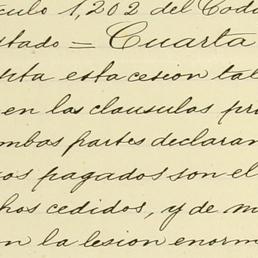 culo 1,202 del Codi
stado = Cuarta
pta esta cesion tal
en las clausulas pr
mbas partes declaran
os pagados son el
hos cedidos, y de m
n la lesion enorm